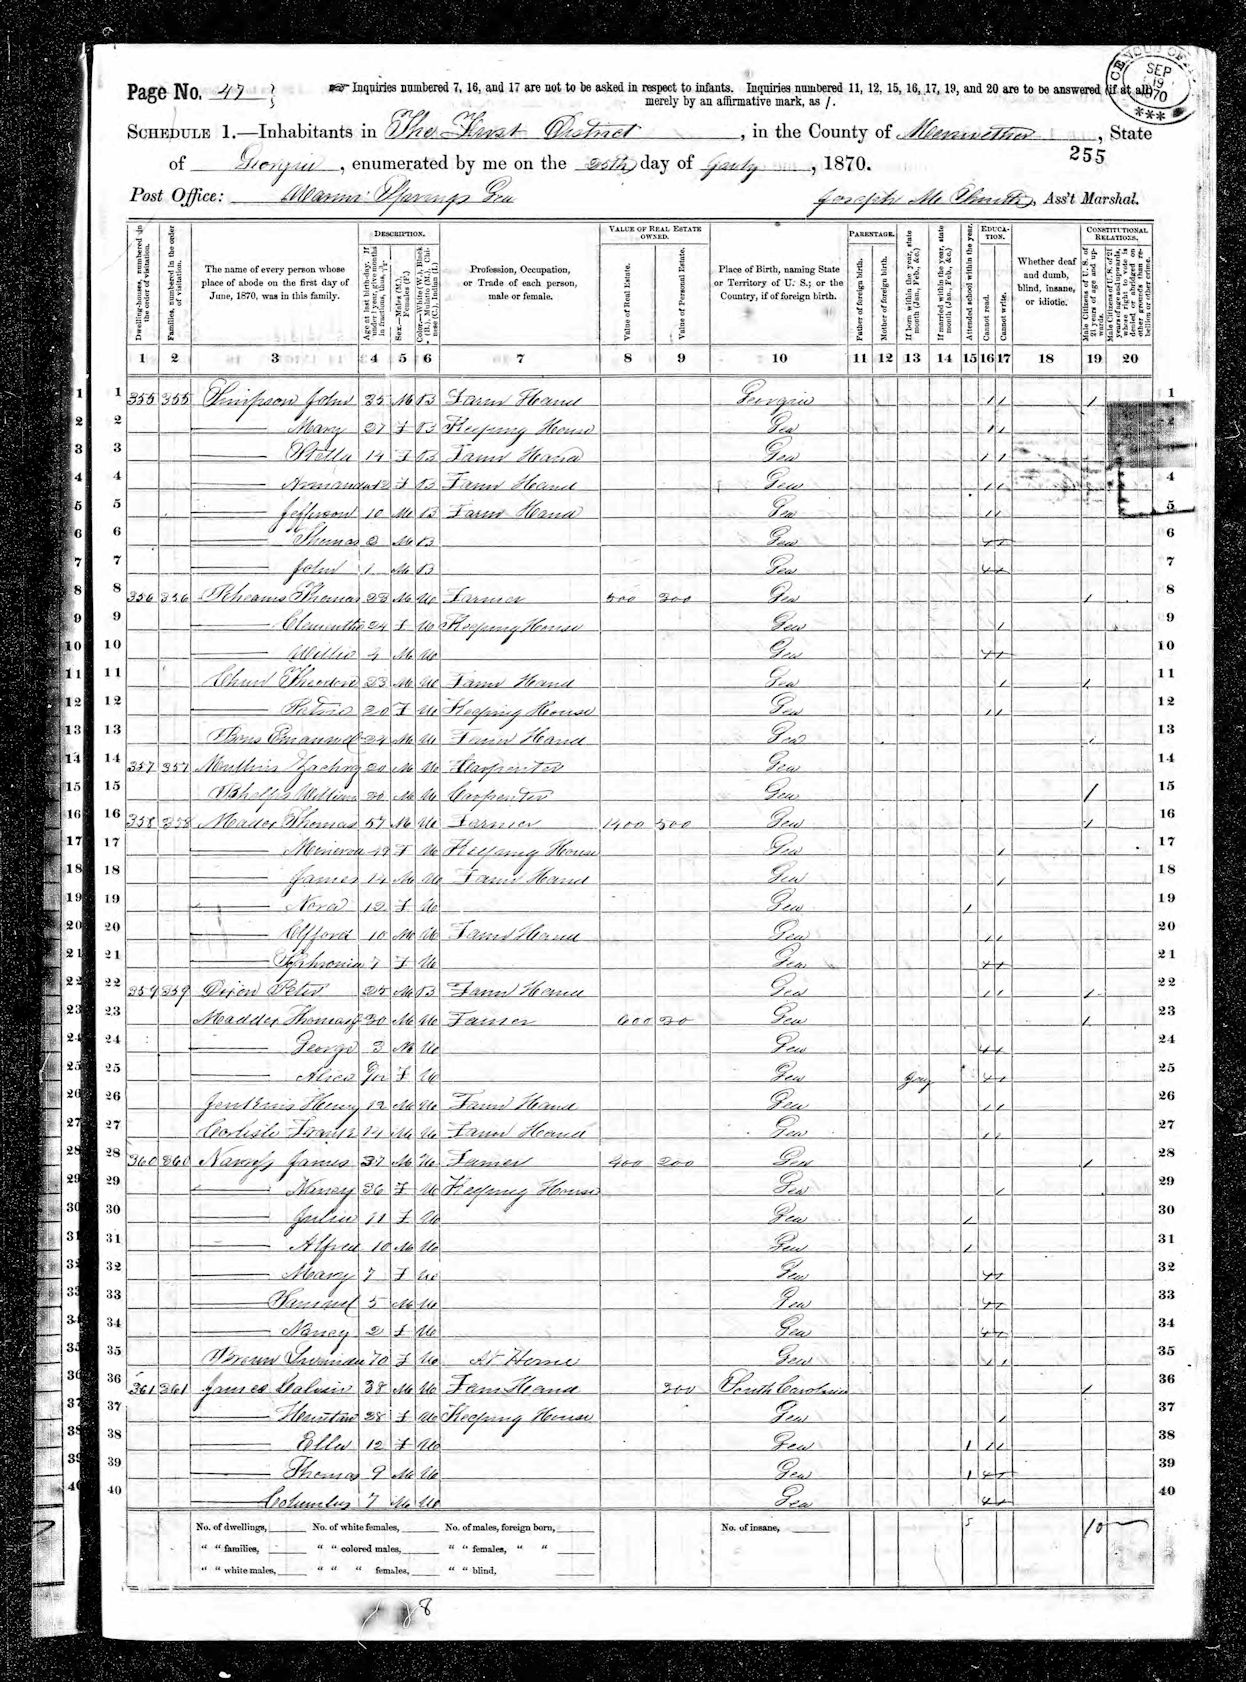 Page No. 47
Inquiries numbered 7, 16, and 17 are not to be asked in respect to infants. Inquiries numbered 11, 12, 15, 16, 17, 19, and 20 are to be answered (if at all)
merely by an affirmative mark, as /.
SEP 19 1870
SCHEDULE 1.—Inhabitants in The First District, in the County of Meriwether, State
of Georgia, enumerated by me on the 25th day of July, 1870.
255
Post Office: Warm Springs Gea
Joseph M Smith, Ass't Marshal.
Dwelling-houses, numbered in the order of visitation.
Families, numbered in the order of visitation.
The name of every person whose place of abode on the first day of June, 1870, was in this family.
DESCRIPTION.
Age at last birth-day. If under 1 year, give months in fractions, thus, 3/12.
Sex.—Males (M.), Females (F.)
Color.—White (W.), Black (B.), Mulatto (M.), Chinese (C.), Indian (I.)
Profession, Occupation, or Trade of each person, male or female.
VALUE OF REAL ESTATE OWNED.
Value of Real Estate.
Value of Personal Estate.
Place of Birth, naming State or Territory of U. S.; or the Country, if of foreign birth.
PARENTAGE.
Father of foreign birth.
Mother of foreign birth.
If born within the year, state month (Jan., Feb., &c.)
If married within the year, state month (Jan., Feb., &c.)
Attended school within the year.
EDUCATION.
Cannot read.
Cannot write.
Whether deaf and dumb, blind, insane, or idiotic.
CONSTITUTIONAL RELATIONS.
Male Citizens of U. S. of 21 years of age and upwards.
Male Citizens of U. S. of 21 years of age and upwards, whose right to vote is denied or abridged on other grounds than rebellion or other crime.
1 2 3 4 5 6 7 8 9 10 11 12 13 14 15 16 17 18 19 20
1 355 355 Simpson John 35 M B Farm Hand Georgia 1 1 1 1
2 Mary 27 F B Keeping House Gea 1 1
3 Stella 14 F B Farm Hand Gea 1 1
4 12 F B Farm Hand Gea 1 1 4
5 Jefferson 10 M B Farm Hand Gea 1 1 5
6 Thomas M B Gea 6
7 John 1 M B Gea 7
8 356 356 Thomas 28 M W Farmer 500 200 Gea 1 8
9 24 F W Keeping House Gea 1 9
10 Willie 4 M W Gea 10
11 23 M W Farm Hand Gea 1 1 11
12 20 F W Keeping House Gea 1 1 12
13 Emanuel 24 M W Farm Hand Gea 1 13
14 357 357 Mullins 20 M W Carpenter Gea 14
15 Phelps William 30 M W Carpenter Gea 1 15
16 358 358 Maddox Thomas 57 M W Farmer 1400 500 Gea 1 16
17 Minerva 49 F W Keeping House Gea 1 17
18 James 14 M W Farm Hand Gea 1 18
19 Nora 12 F W Gea 1 19
20 10 M W Farm Hand Gea 1 1 20
21 Sophronia 7 F W Gea 21
22 359 359 Dixon Peter 25 M B Farm Hand Gea 1 1 1 22
23 Maddox Thomas 30 M W Farmer 600 20 Gea 1 23
24 George 3 M W Gea 24
25 Alice F W Gea 25
26 Jenkins Henry 12 M W Farm Hand Gea 1 1 26
27 Carlisle Frank 14 M W Farm Hand Gea 1 1 27
28 360 360 James 37 M W Farmer 400 200 Gea 1 28
29 Nancy 36 F W Keeping House Gea 1 29
30 Julia 11 F W Gea 1 30
31 Alfred 10 M W Gea 1 31
32 Mary 7 F W Gea 32
33 Samuel 5 M W Gea 33
34 Nancy 2 F W Gea 34
35 Brown 70 F W At Home Gea 1 1 35
36 361 361 James Calvin 38 M W Farm Hand 200 South Carolina 1 36
37 38 F W Keeping House Gea 1 37
38 Ella 12 F W Gea 1 1 1 38
39 Thomas 9 M W Gea 1 39
40 Columbus 7 M W Gea 40
No. of dwellings, No. of white females, No. of males, foreign born, No. of insane, 5 10
" " families, " " colored males, " " females, " "
" " white males, " " " females, " " blind,
8